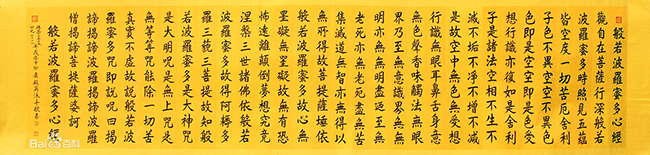 般若波羅蜜多心經
觀自在菩薩行深般若
波羅蜜多時照見五蘊
皆空度一切苦厄舍利
子色不異空空不異色
色即是空空即是色受
想行識亦復如是舍利
子是諸法空相不生不
滅不垢不淨不增不減
是故空中無色無受想
行識無眼耳鼻舌身意
無色聲香味觸法無眼
界乃至無意識界無無
明亦無無明盡乃至無
老死亦無老死盡無苦
集滅道無智亦無得以
無所得故菩提薩埵依
般若波羅蜜多故心無
罣礙無罣礙故無有恐
怖遠離顛倒夢想究竟
涅槃三世諸佛依般若
波羅蜜多故得阿耨多
羅三藐三菩提故知般
若波羅蜜多是大神咒
是大明咒是無上咒是
無等等咒能除一切苦
真實不虛故說般若波
羅蜜多咒即說咒曰揭
諦揭諦波羅揭諦波羅
僧揭諦菩提薩婆訶
般若波羅蜜多心經
Bai百科